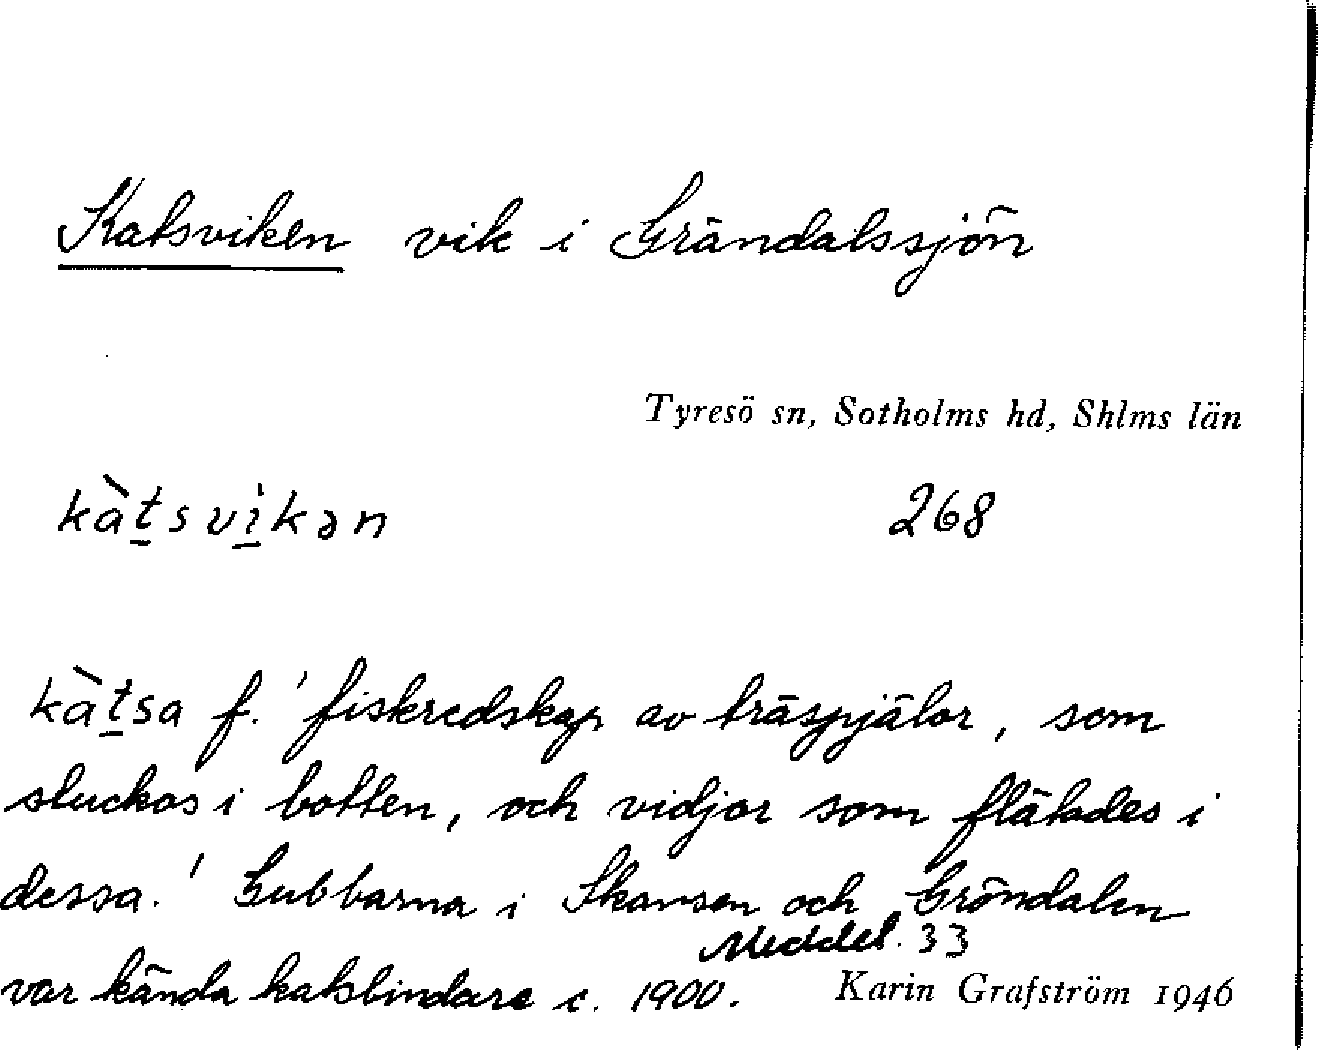 Katsviken vik i Grändalssjön
Tyresö sn, Sotholms hd, Shlms län
kàt̲svi̲̍kən 268
kàt̲sa f. 'fiskredskap av träspjälor, som
stuckos i botten, och vidjor som flätades i
dessa.' Gubbarna i Skansen och Gröndalen
Meddel. 33
var kända katsbindare c. 1900. Karin Grafström 1946